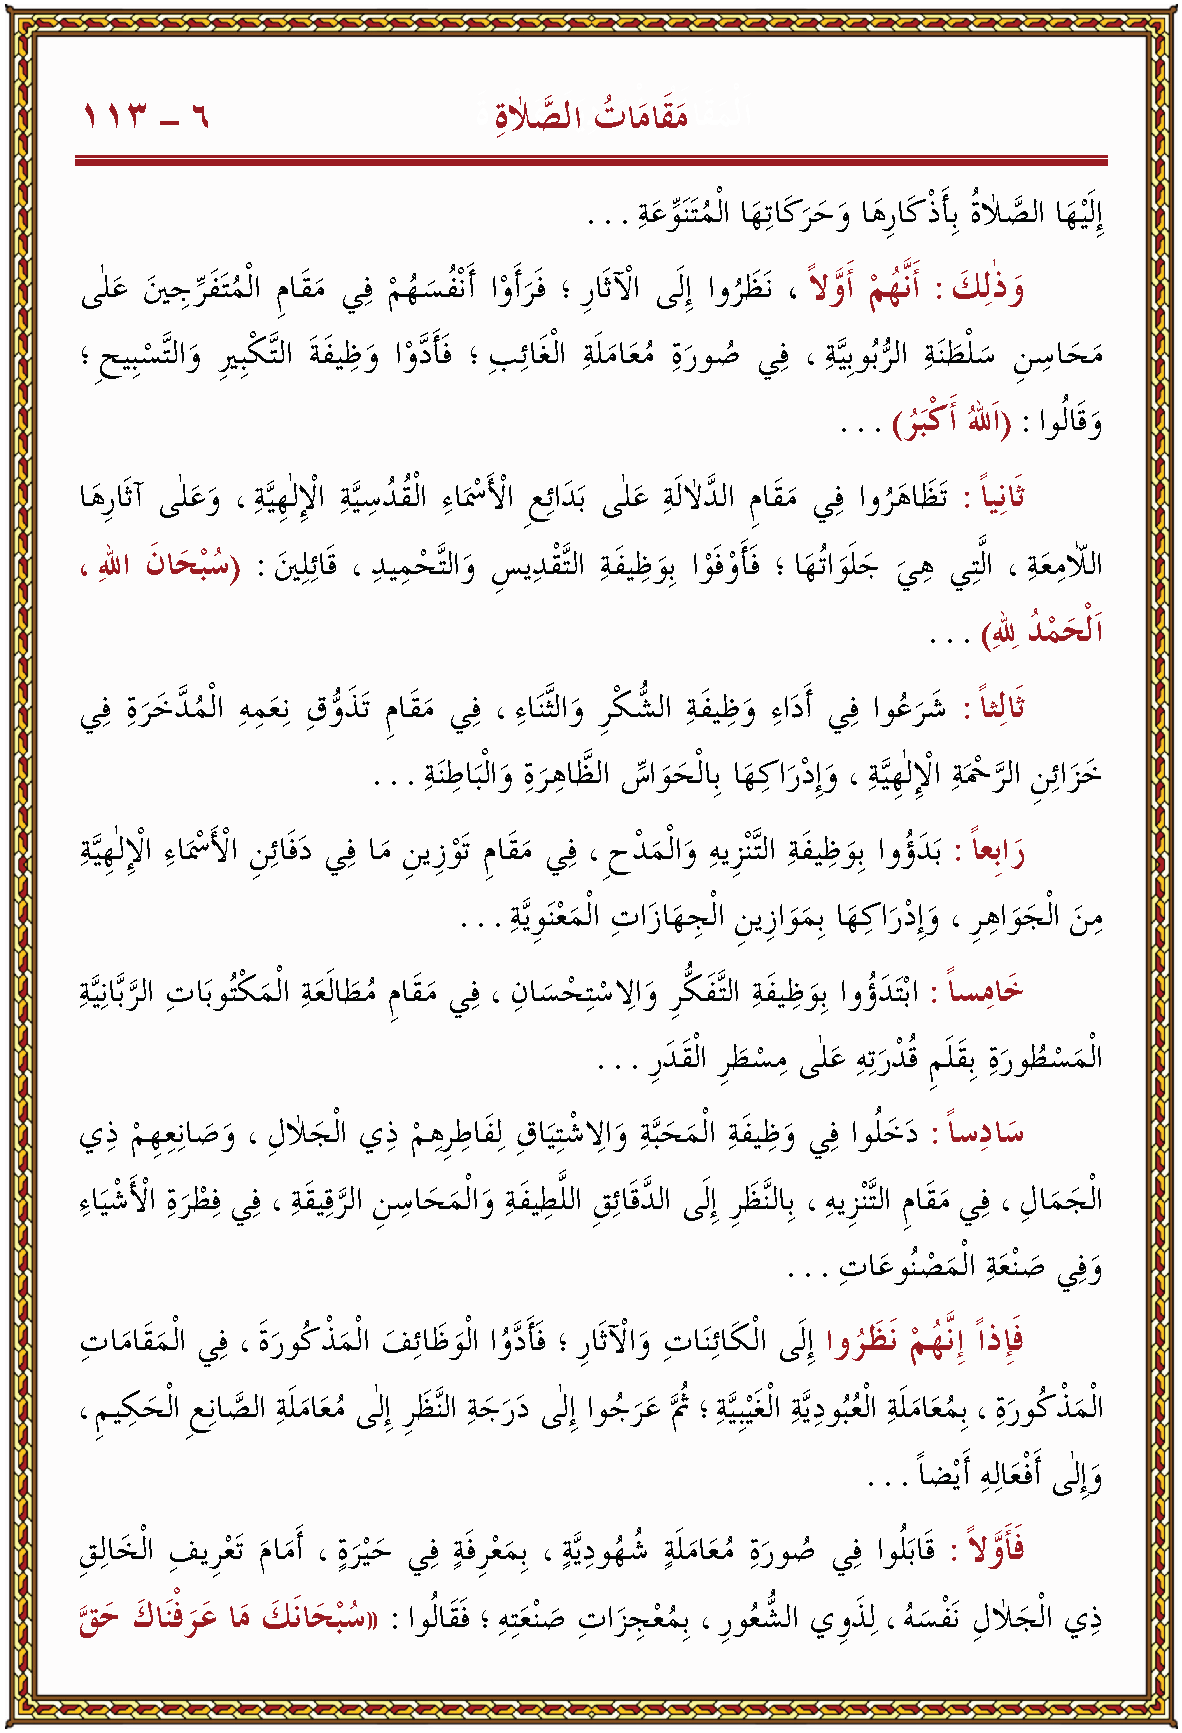 مَقَامَاتُ الصَّلاٰةِ ٦ ــ ١١٣
إِلَيْهَا الصَّلاٰةُ بِأَذْكَارِهَا وَحَرَكَاتِهَا الْمُتَنَوِّعَةِ . . .
وَذٰلِكَ : أَنَّهُمْ أَوَّلاً ، نَظَرُوا إِلَى الْآثَارِ ؛ فَرَأَوْا أَنْفُسَهُمْ فِي مَقَامِ الْمُتَفَرِّجِينَ عَلٰى
مَحَاسِنِ سَلْطَنَةِ الرُّبُوبِيَّةِ ، فِي صُورَةِ مُعَامَلَةِ الْغَائِبِ ؛ فَأَدَّوْا وَظِيفَةَ التَّكْبِيرِ وَالتَّسْبِيحِ ؛
وَقَالُوا : (اَللهُ أَكْبَرُ) . . .
ثَانِياً : تَظَاهَرُوا فِي مَقَامِ الدَّلاٰلَةِ عَلٰى بَدَائِعِ الْأَسْمَاءِ الْقُدُسِيَّةِ الْإِلٰهِيَّةِ ، وَعَلٰى آثَارِهَا
اللّاَمِعَةِ ، الَّتِي هِيَ جَلَوَاتُهَا ؛ فَأَوْفَوْا بِوَظِيفَةِ التَّقْدِيسِ وَالتَّحْمِيدِ ، قَائِلِينَ : (سُبْحَانَ اللهِ ،
اَلْحَمْدُ لِلهِ) . . .
ثَالِثاً : شَرَعُوا فِي أَدَاءِ وَظِيفَةِ الشُّكْرِ وَالثَّنَاءِ ، فِي مَقَامِ تَذَوُّقِ نِعَمِهِ الْمُدَّخَرَةِ فِي
خَزَائِنِ الرَّحْمَةِ الْإِلٰهِيَّةِ ، وَإِدْرَاكِهَا بِالْحَوَاسِّ الظَّاهِرَةِ وَالْبَاطِنَةِ . . .
رَابِعاً : بَدَؤُوا بِوَظِيفَةِ التَّنْزِيهِ وَالْمَدْحِ ، فِي مَقَامِ تَوْزِينِ مَا فِي دَفَائِنِ الْأَسْمَاءِ الْإِلٰهِيَّةِ
مِنَ الْجَوَاهِرِ ، وَإِدْرَاكِهَا بِمَوَازِينِ الْجِهَازَاتِ الْمَعْنَوِيَّةِ . . .
خَامِساً : ابْتَدَؤُوا بِوَظِيفَةِ التَّفَكُّرِ وَالاِسْتِحْسَانِ ، فِي مَقَامِ مُطَالَعَةِ الْمَكْتُوبَاتِ الرَّبَّانِيَّةِ
الْمَسْطُورَةِ بِقَلَمِ قُدْرَتِهِ عَلٰى مِسْطَرِ الْقَدَرِ . . .
سَادِساً : دَخَلُوا فِي وَظِيفَةِ الْمَحَبَّةِ وَالاِشْتِيَاقِ لِفَاطِرِهِمْ ذِي الْجَلاٰلِ ، وَصَانِعِهِمْ ذِي
الْجَمَالِ ، فِي مَقَامِ التَّنْزِيهِ ، بِالنَّظَرِ إِلَى الدَّقَائِقِ اللَّطِيفَةِ وَالْمَحَاسِنِ الرَّقِيقَةِ ، فِي فِطْرَةِ الْأَشْيَاءِ
وَفِي صَنْعَةِ الْمَصْنُوعَاتِ . . .
فَإِذاً إِنَّهُمْ نَظَرُوا إِلَى الْكَائِنَاتِ وَالْآثَارِ ؛ فَأَدَّوُا الْوَظَائِفَ الْمَذْكُورَةَ ، فِي الْمَقَامَاتِ
الْمَذْكُورَةِ ، بِمُعَامَلَةِ الْعُبُودِيَّةِ الْغَيْبِيَّةِ ؛ ثُمَّ عَرَجُوا إِلٰى دَرَجَةِ النَّظَرِ إِلٰى مُعَامَلَةِ الصَّانِعِ الْحَكِيمِ ،
وَإِلٰى أَفْعَالِهِ أَيْضاً . . .
فَأَوَّلاً : قَابَلُوا فِي صُورَةِ مُعَامَلَةٍ شُهُودِيَّةٍ ، بِمَعْرِفَةٍ فِي حَيْرَةٍ ، أَمَامَ تَعْرِيفِ الْخَالِقِ
ذِي الْجَلاٰلِ نَفْسَهُ ، لِذَوِي الشُّعُورِ ، بِمُعْجِزَاتِ صَنْعَتِهِ ؛ فَقَالُوا : «سُبْحَانَكَ مَا عَرَفْنَاكَ حَقَّ